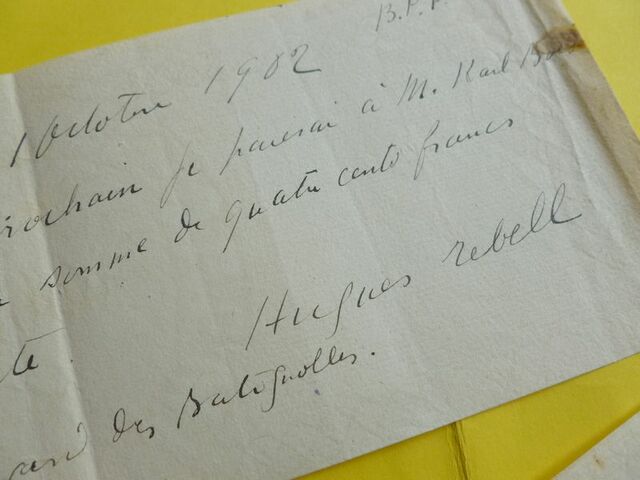 B.P.F.
1 Octobre 1902
prochain je paierai à M. Karl
somme de quatre cents francs
Hugues rebell
des Batignolles.